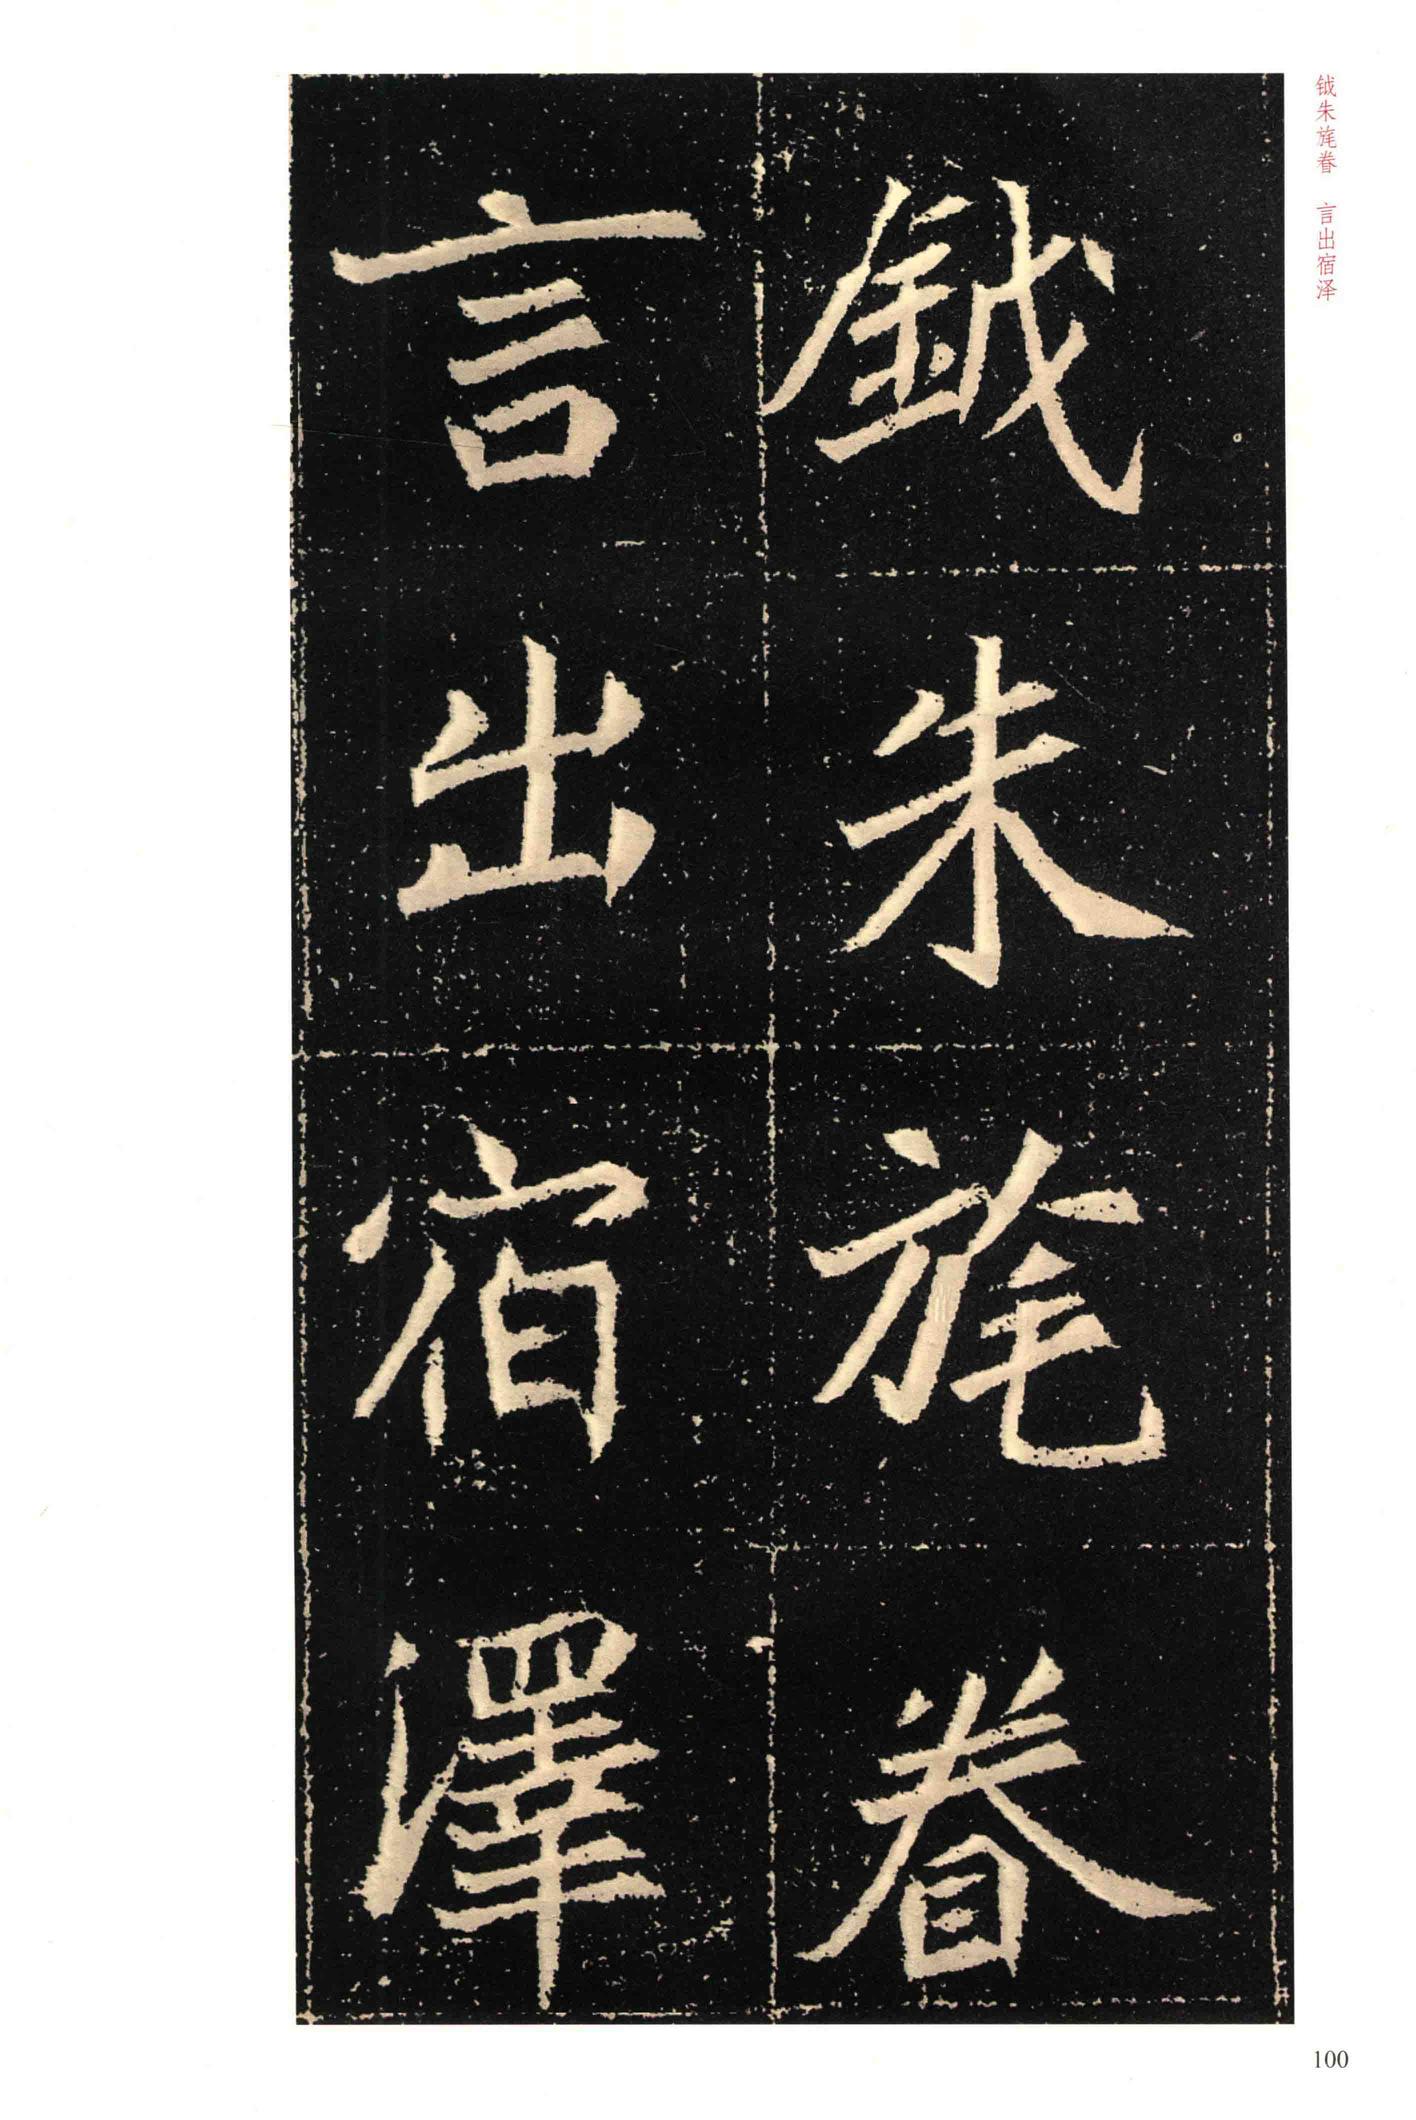 钺朱旄眷 言出宿泽
鉞朱旄眷
言出宿澤
100